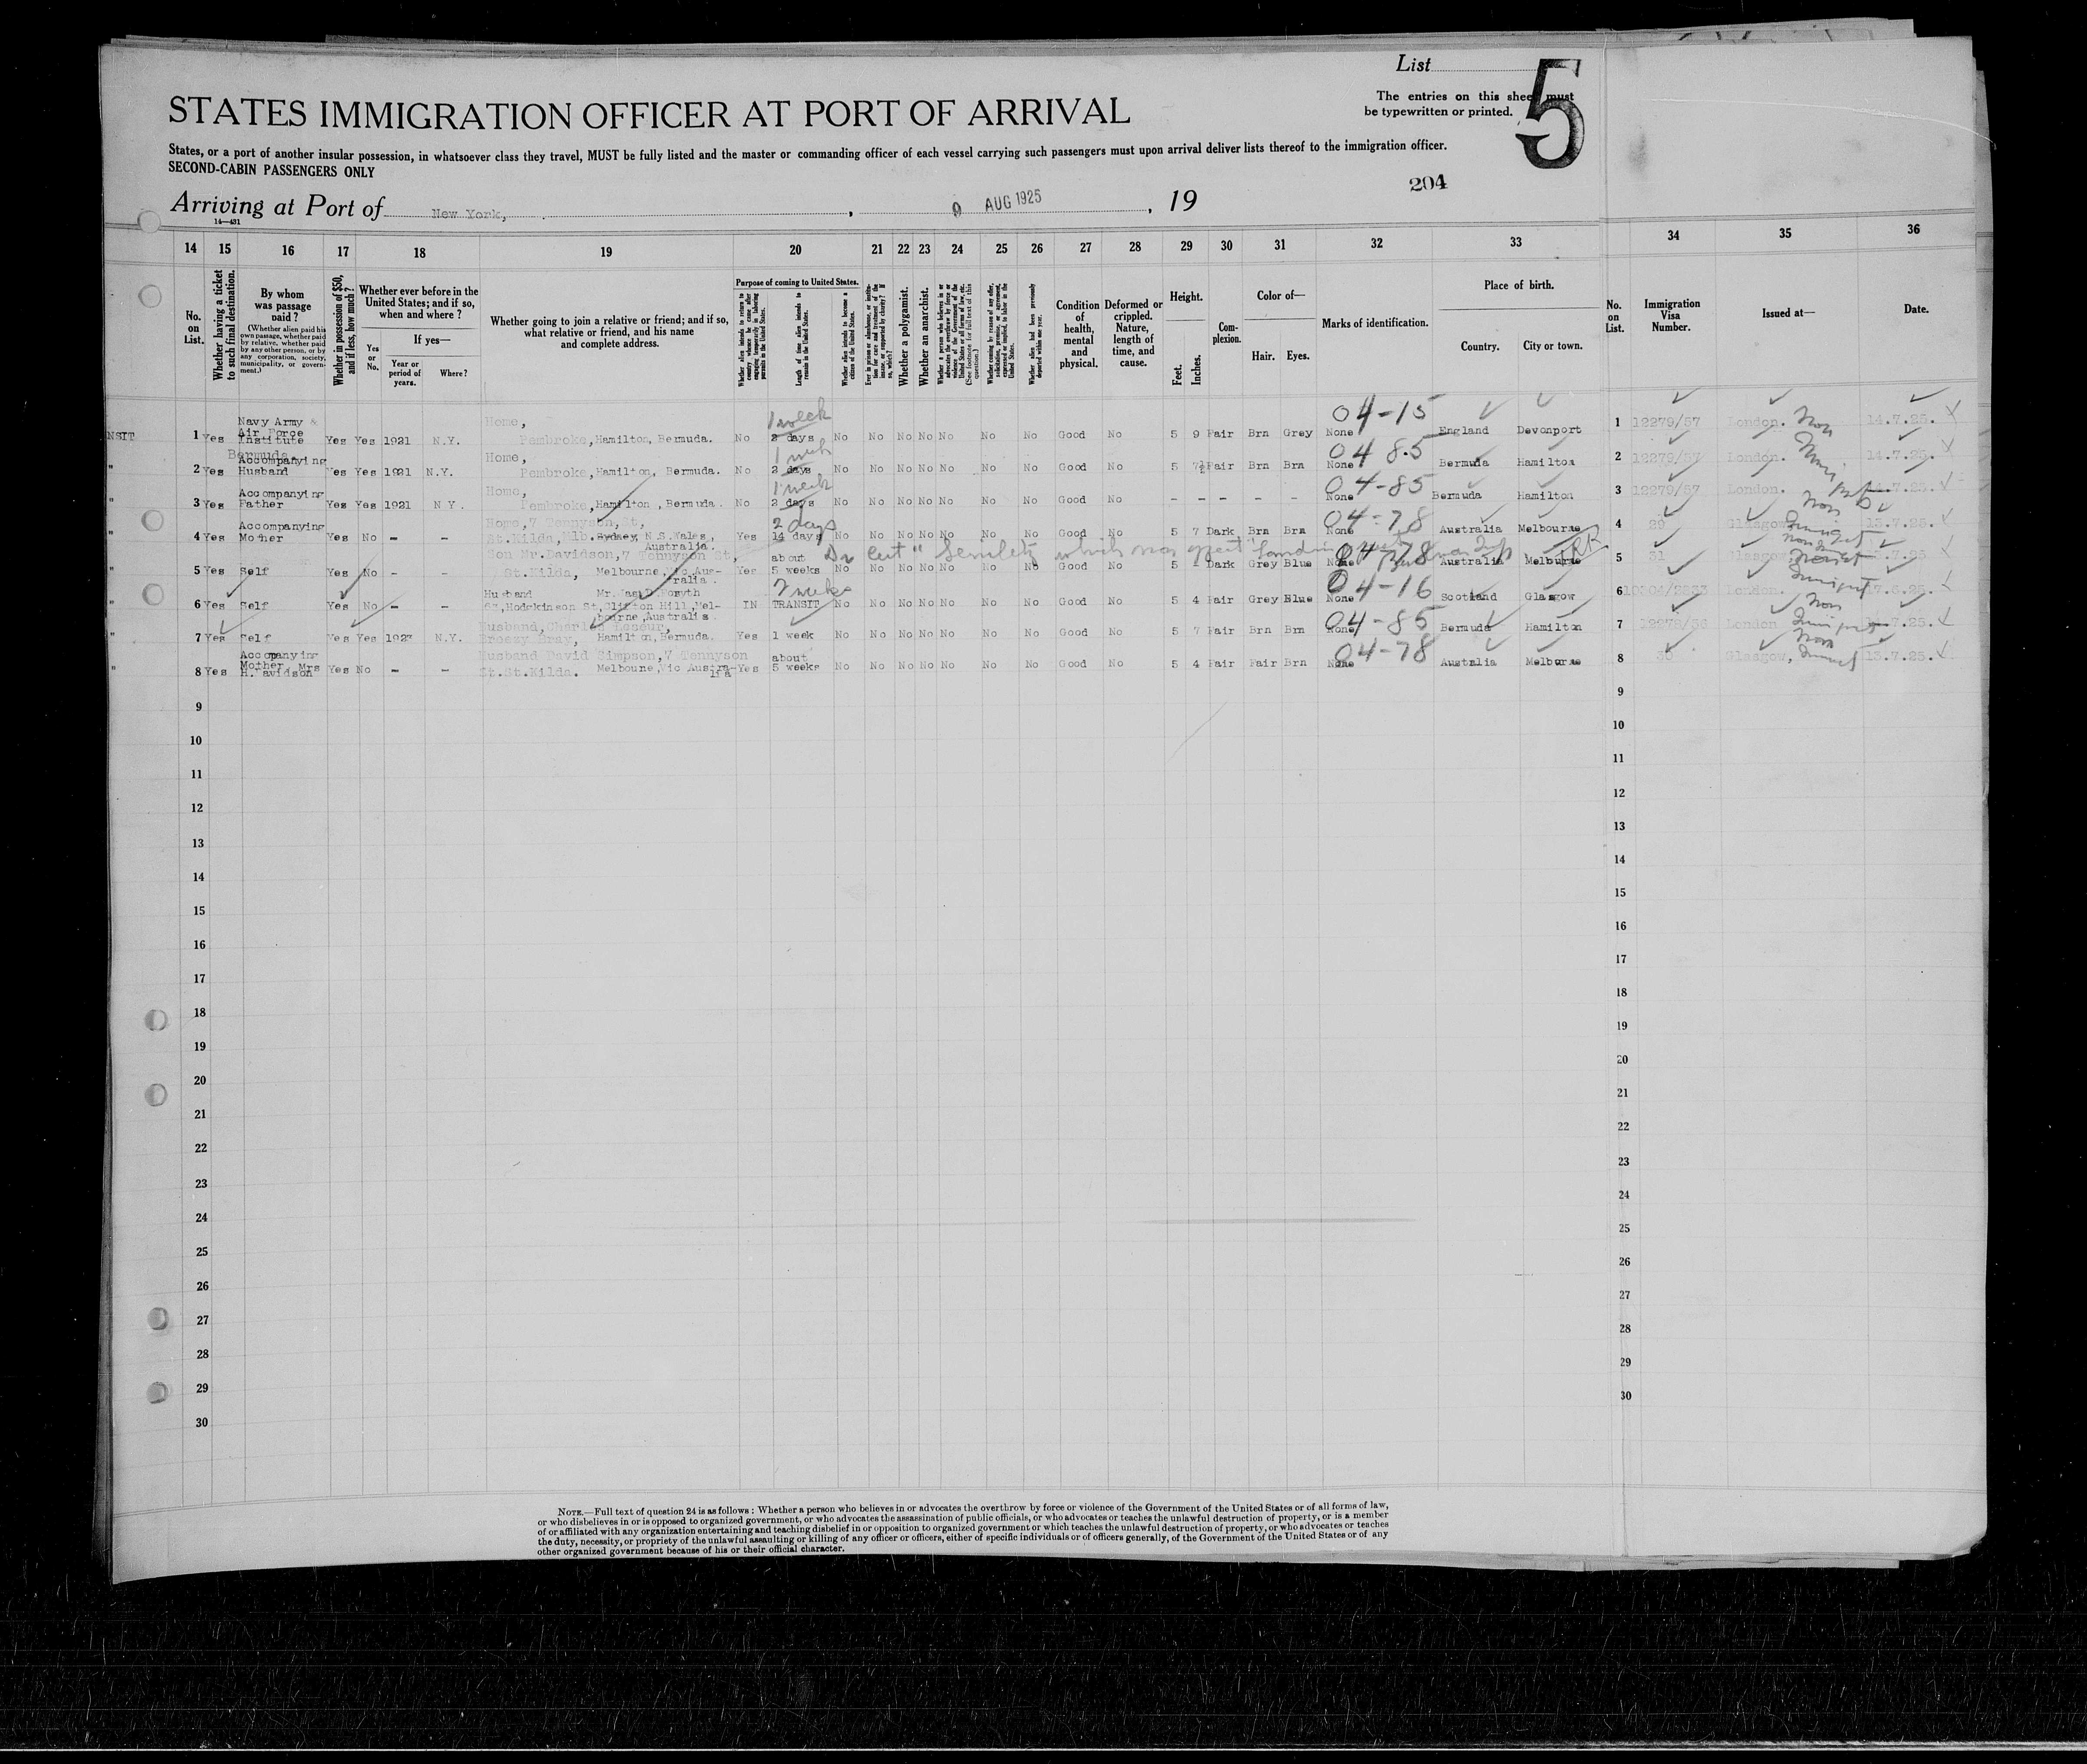 List
5
The entries on this sheet must
be typewritten or printed.
STATES IMMIGRATION OFFICER AT PORT OF ARRIVAL
States, or a port of another insular possession, in whatsoever class they travel, MUST be fully listed and the master or commanding officer of each vessel carrying such passengers must upon arrival deliver lists thereof to the immigration officer.
SECOND-CABIN PASSENGERS ONLY
204
Arriving at Port of New York, , 9 AUG 1925 , 19
14—431
14 15 16 17 18 19 20 21 22 23 24 25 26 27 28 29 30 31 32 33 34 35 36
No. on List.
Whether having a ticket to such final destination.
By whom was passage paid?
(Whether alien paid his own passage, whether paid by relative, whether paid by any other person, or by any corporation, society, municipality, or government.)
Whether in possession of $50, and if less, how much?
Whether ever before in the United States; and if so, when and where?
Yes or No.
If yes—
Year or period of years.
Where?
Whether going to join a relative or friend; and if so, what relative or friend, and his name and complete address.
Purpose of coming to United States.
Whether alien intends to return to country whence he came after engaging temporarily in laboring pursuits in the United States.
Length of time alien intends to remain in the United States.
Whether alien intends to become a citizen of the United States.
Whether a polygamist.
Whether an anarchist.
Condition of health, mental and physical.
Deformed or crippled. Nature, length of time, and cause.
Height.
Feet. Inches.
Complexion.
Color of—
Hair. Eyes.
Marks of identification.
Place of birth.
Country. City or town.
No. on List.
Immigration Visa Number.
Issued at—
Date.
NSIT 1 Yes Navy Army & Air Force Institute Bermuda Yes Yes 1921 N.Y. Home, Pembroke, Hamilton, Bermuda. No 1 week 2 days No No No No No No No Good No 5 9 Fair Brn Grey 04-15 None England Devonport 1 12279/57 London. Non 14.7.25.
" 2 Yes Accompanying Husband Yes Yes 1921 N.Y. Home, Pembroke, Hamilton, Bermuda. No 1 week 2 days No No No No No No No Good No 5 7½ Fair Brn Brn 04 85 None Bermuda Hamilton 2 12279/57 London. 14.7.25.
" 3 Yes Accompanying Father Yes Yes 1921 N Y. Home, Pembroke, Hamilton, Bermuda. No 1 week 2 days No No No No No No No Good No - - - - - 04-85 None Bermuda Hamilton 3 12279/57 London. 14.7.25.
" 4 Yes Accompanying Mother Yes No - - Home, 7 Tennyson, St, St.Kilda, Mlb. Sydney, N.S.Wales, Australia. Yes 2 days 14 days No No No No No No No Good No 5 7 Dark Brn Brn 04-78 None Australia Melbourne 4 29 Glasgow 13.7.25.
" 5 Yes Self Yes No - - Son Mr.Davidson, 7 Tennyson St, St.Kilda, Melbourne, Vic Australia. Yes about 5 weeks No No No No No No No Good No 5 Dark Grey Blue 04-78 None Australia Melburne 5 31 Glasgow .7.25
Dr cert "Senility which may affect landing
" 6 Yes Self Yes No - - Husband Mr. Jas.D.Forsyth 67, Hodgkinson St, Clifton Hill, Melbourne, Australia. IN TRANSIT 2 weeks No No No No No No No Good No 5 4 Fair Grey Blue 04-16 None Scotland Glasgow 6 London.
" 7 Yes Self Yes Yes 192 N.Y. Husband, Charles Leseur, Hamilton, Bermuda. Yes 1 week No No No No No No No Good No 5 7 Fair Brn Brn 04-85 None Bermuda Hamilton 7 12278/56 London .7.25.
" 8 Yes Accompanying Mother Mrs H.Davidson Yes No - - Husband David Simpson, 7 Tennyson St.St.Kilda. Melboune, Vic Australia Yes about 5 weeks No No No No No No No Good No 5 4 Fair Fair Brn 04-78 None Australia Melburne 8 30 Glasgow, 13.7.25.
9 9
10 10
11 11
12 12
13 13
14 14
15 15
16 16
17 17
18 18
19 19
20 20
21 21
22 22
23 23
24 24
25 25
26 26
27 27
28 28
29 29
30 30
NOTE.—Full text of question 24 is as follows: Whether a person who believes in or advocates the overthrow by force or violence of the Government of the United States or of all forms of law,
or who disbelieves in or is opposed to organized government, or who advocates the assassination of public officials, or who advocates or teaches the unlawful destruction of property, or is a member
of or affiliated with any organization entertaining and teaching disbelief in or opposition to organized government or which teaches the unlawful destruction of property, or who advocates or teaches
the duty, necessity, or propriety of the unlawful assaulting or killing of any officer or officers, either of specific individuals or of officers generally, of the Government of the United States or of any
other organized government because of his or their official character.